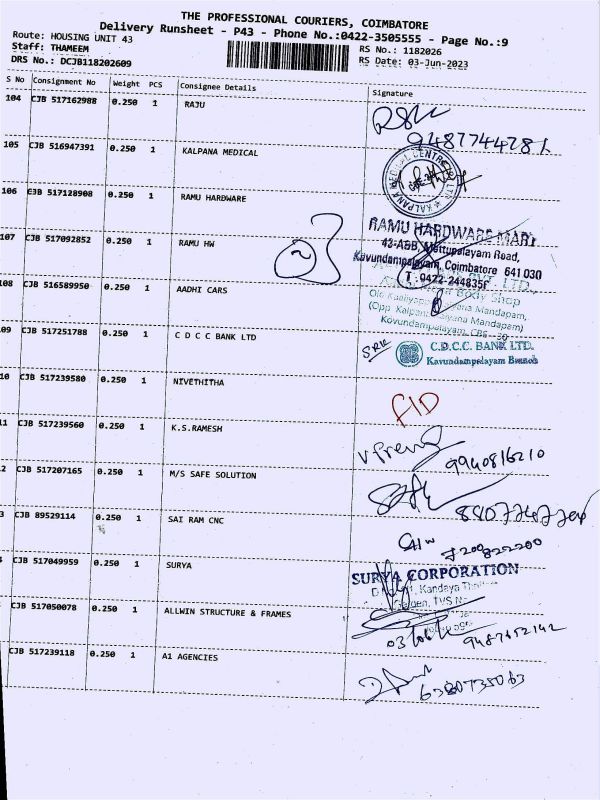 THE PROFESSIONAL COURIERS, COIMBATORE
Delivery Runsheet - P43 - Phone No.:0422-3505555 - Page No.:9
Route: HOUSING UNIT 43
Staff: THAMEEM
RS No.: 1182026
DRS No.: DCJB118202609
RS Date: 03-Jun-2023
S No Consignment No Weight PCS Consignee Details Signature
104 CJB 517162988 0.250 1 RAJU
9487744281
105 CJB 516947391 0.250 1 KALPANA MEDICAL
106 CJB 517128908 0.250 1 RAMU HARDWARE
RAMU HARDWARE MART
43-A&B, Mettupalayam Road,
107 CJB 517092852 0.250 1 RAMU HW
2
Kavundampalayam, Coimbatore 641 030
T 0422-244835
108 CJB 516589950 0.250 1 AADHI CARS
Body Shop
(Opp. Kalpana Kalyana Mandapam)
Kovundampalayam, CBE - 30
09 CJB 517251788 0.250 1 C D C C BANK LTD
C.D.C.C. BANK LTD.
Kavundampalayam Branch
10 CJB 517239580 0.250 1 NIVETHITHA
11 CJB 517239560 0.250 1 K.S.RAMESH
9940816210
2 CJB 517207165 0.250 1 M/S SAFE SOLUTION
3 CJB 89529114 0.250 1 SAI RAM CNC
CJB 517049959 0.250 1 SURYA
SURYA CORPORATION
CJB 517050078 0.250 1 ALLWIN STRUCTURE & FRAMES
9487652142
CJB 517239118 0.250 1 A1 AGENCIES
6380735063